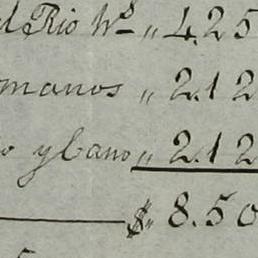 del Rio Ws " 4.25
manos " 2.12
o ybano " 2.12
$ 8.50